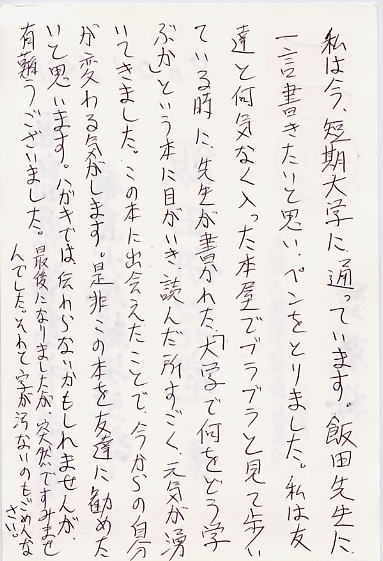 私は今、短期大学に通っています。飯田先生に
一言書きたいと思い、ペンをとりました。私は友
達と何気なく入った本屋でブラブラと見て歩い
ている時に、先生が書かれた、「大学で何をどう学
ぶか」という本に目がいき、読んだ所すごく、元気が湧
いてきました。この本に出会えたことで、今からの自分
が変わる気がします。是非この本を友達に勧めた
いと思います。ハガキでは伝わらないかもしれませんが、
有難うございました。最後になりましたが、突然ですみませ
んでした。それと字が汚ないのもごめんな
さい。